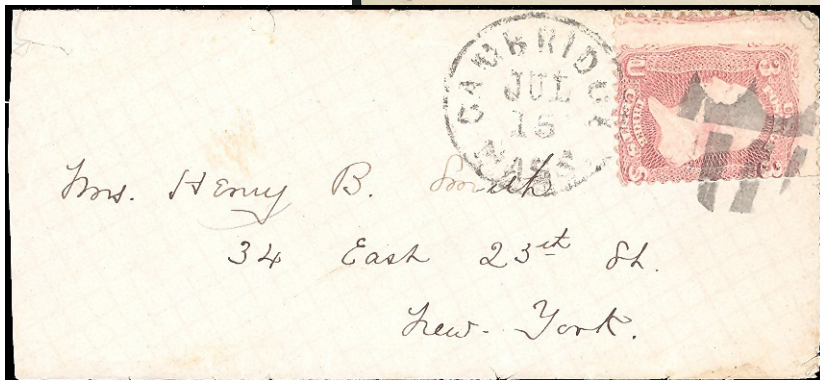 CAMBRIDGE
JUL
15
MASS
U 3
S 3
Mrs. Henry B. Smith
34 East 23st St.
New-York.